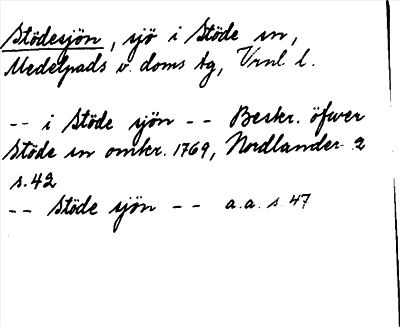 Stödesjön, sjö i Stöde sn,
Medelpads v. doms tg, Vrnl. l.
-- i Stöde sjön -- Beskr. öfwer
Stöde sn omkr. 1769, Nordlander 2
s. 42
-- Stöde sjön -- a.a. s. 47